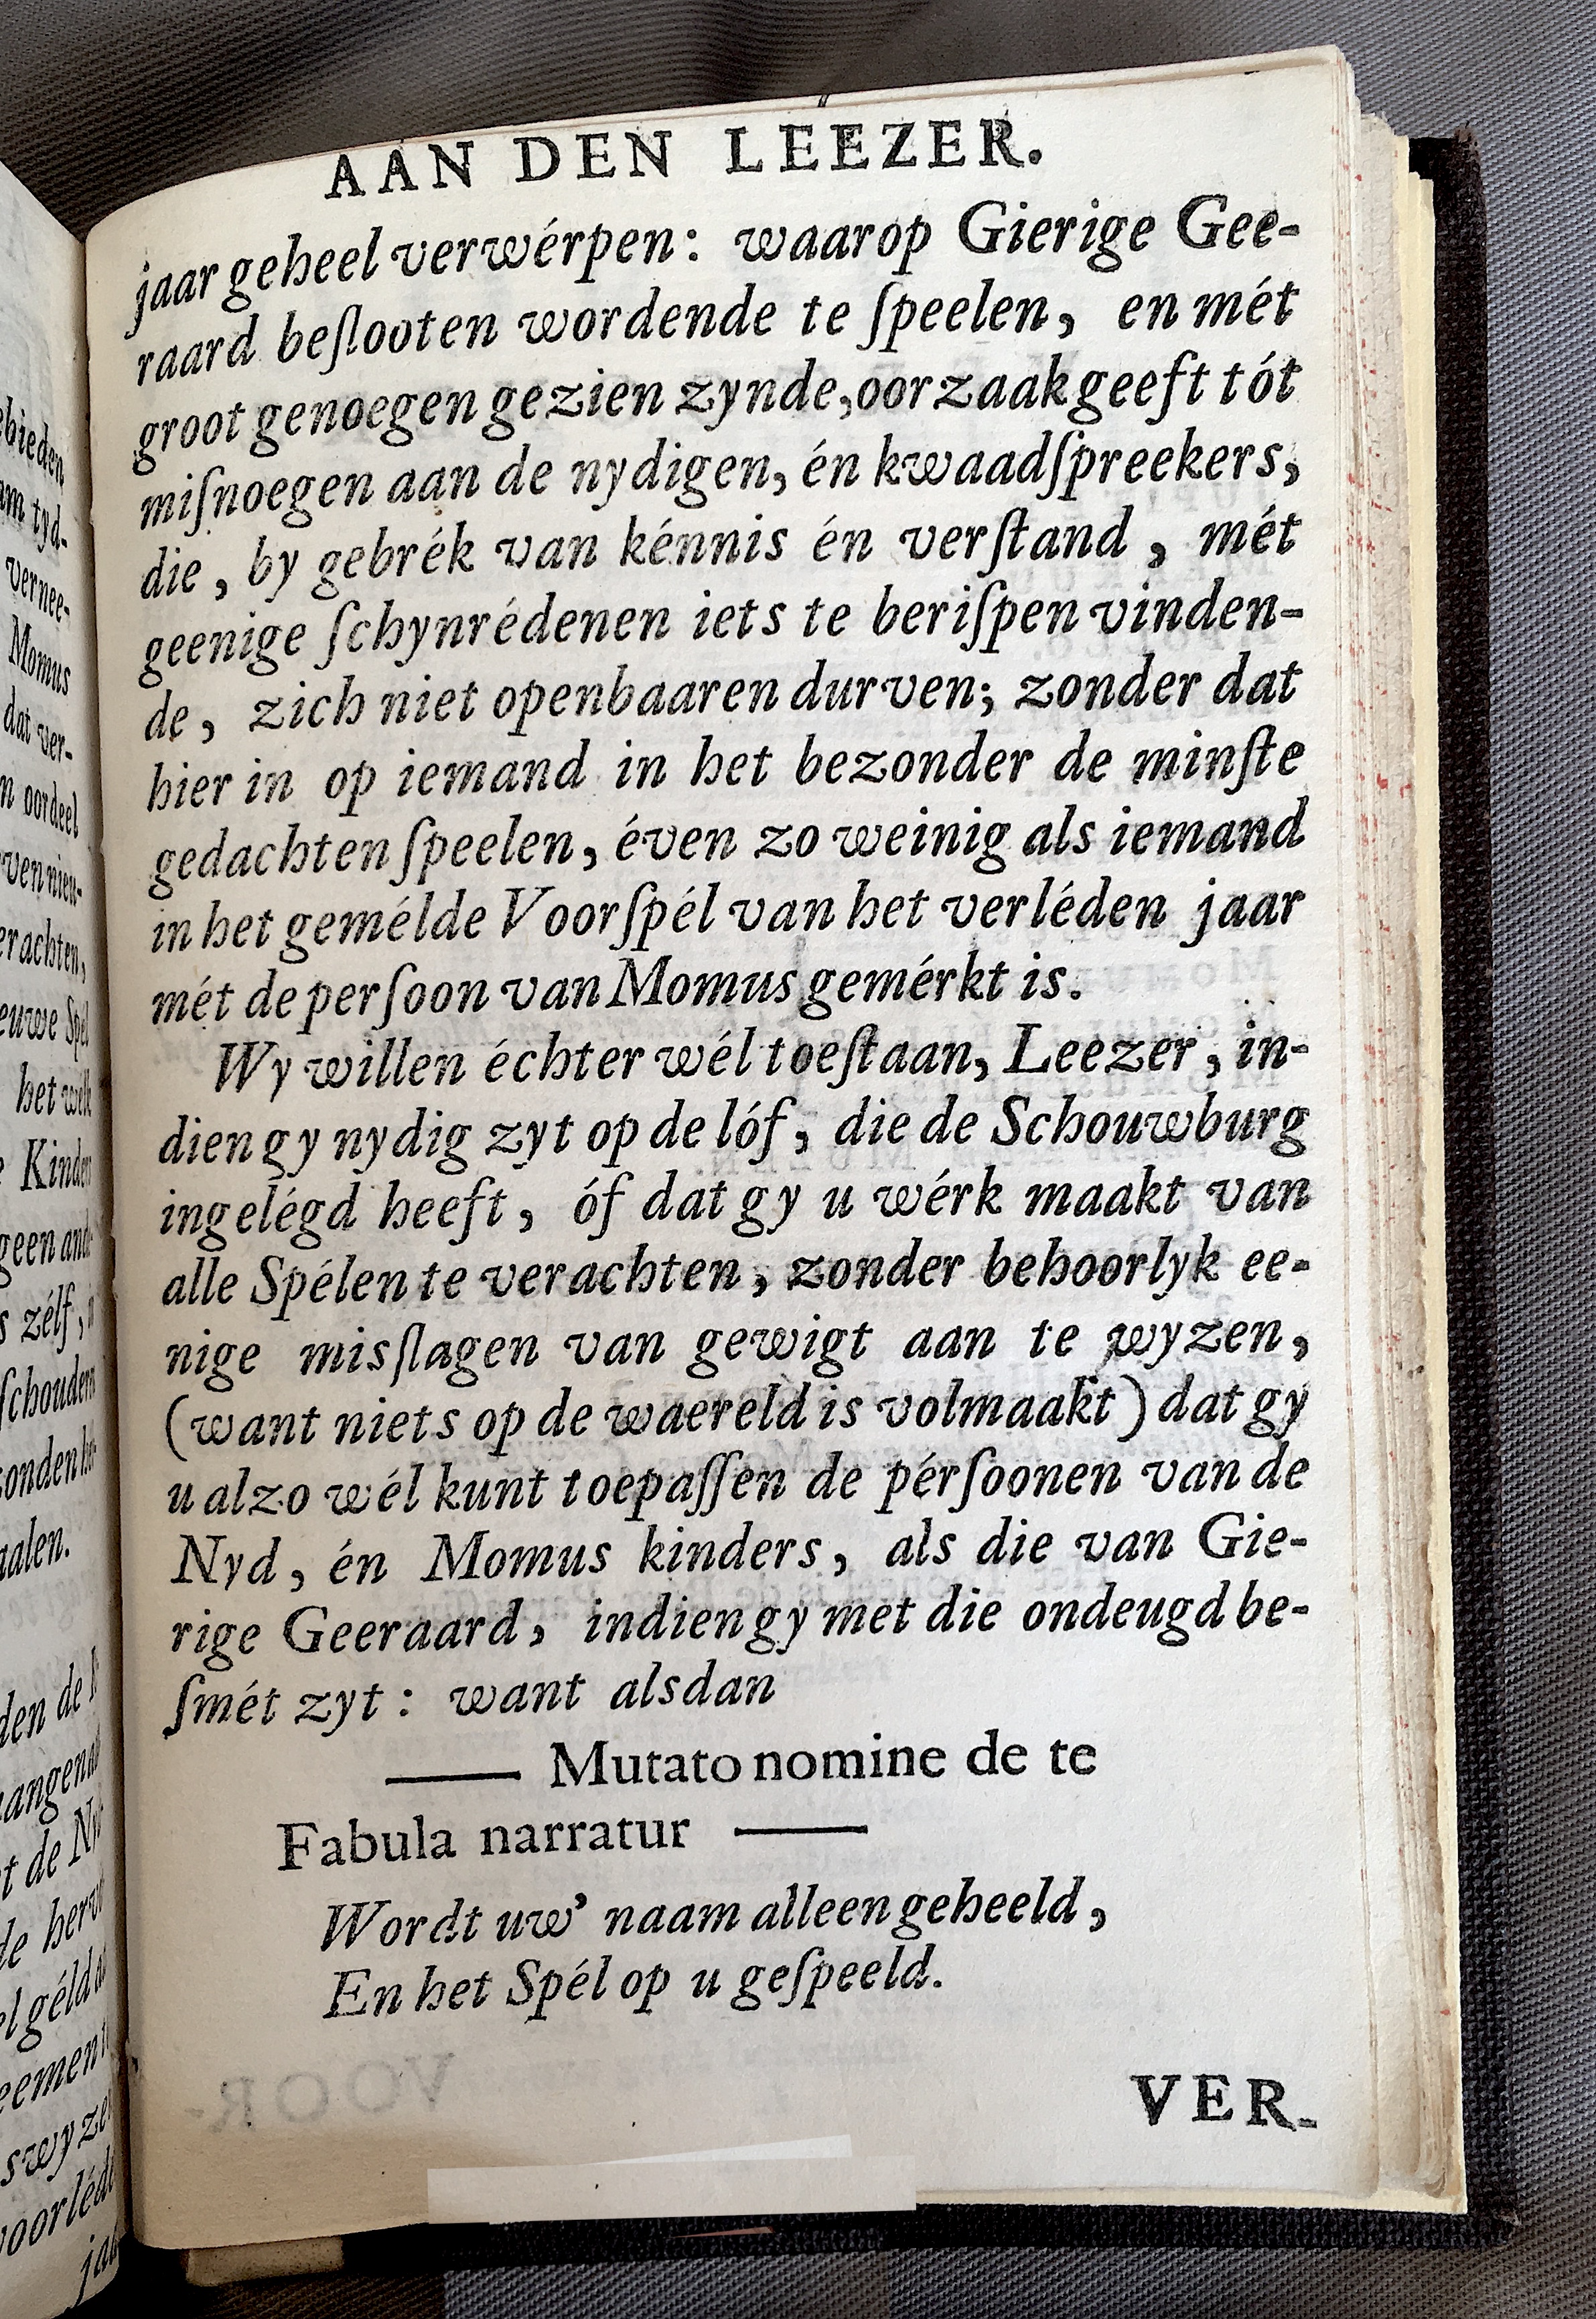 AAN DEN LEEZER.
jaar geheel verwérpen: waarop Gierige Gee-
raard beſlooten wordende te ſpeelen, en mét
groot genoegen gezien zynde, oorzaak geeft tót
miſnoegen aan de nydigen, én kwaadſpreekers,
die, by gebrék van kénnis én verſtand, mét
geenige ſchynrédenen iets te beriſpen vinden-
de, zich niet openbaaren durven; zonder dat
hier in op iemand in het bezonder de minſte
gedachten ſpeelen, éven zo weinig als iemand
in het gemélde Voorſpél van het verléden jaar
mét de perſoon van Momus gemérkt is.
Wy willen échter wél toeſtaan, Leezer, in-
dien gy nydig zyt op de lóf, die de Schouwburg
ingelégd heeft, óf dat gy u wérk maakt van
alle Spélen te verachten, zonder behoorlyk ee-
nige misſlagen van gewigt aan te wyzen,
(want niets op de waereld is volmaakt) dat gy
u alzo wél kunt toepaſſen de pérſoonen van de
Nyd, én Momus kinders, als die van Gie-
rige Geeraard, indien gy met die ondeugd be-
ſmét zyt: want alsdan
—— Mutato nomine de te
Fabula narratur ——
Wordt uw' naam alleen geheeld,
En het Spél op u geſpeeld.
VER-
ebieden
am tyd-
vernee-
Momus
dat ver-
n oordeel
ven nieu-
erachten,
euwe Spél
het welk
Kinder
geen and
s zélf,
ſchouder
zonden
aalen.
den de
t de
de
él géld
swy
voorléde
jaar